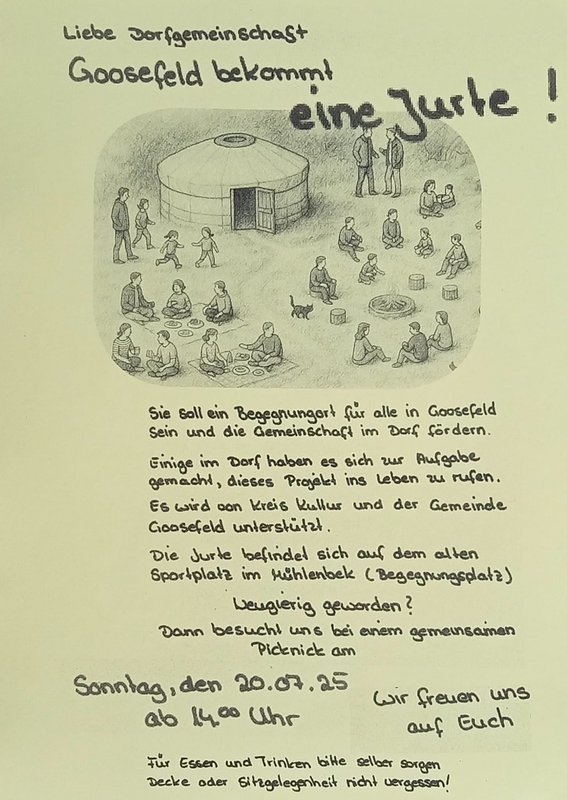 Liebe Dorfgemeinschaft
Goosefeld bekommt
eine Jurte !
Sie soll ein Begegnungort für alle in Goosefeld
sein und die Gemeinschaft im Dorf fördern.
Einige im Dorf haben es sich zur Aufgabe
gemacht, dieses Projekt ins Leben zu rufen.
Es wird von Kreis Kultur und der Gemeinde
Goosefeld unterstützt.
Die Jurte befindet sich auf dem alten
Sportplatz im Mühlenbek (Begegnungsplatz)
Neugierig geworden?
Dann besucht uns bei einem gemeinsamen
Picknick am
Sonntag, den 20.07.25
ab 14.00 Uhr
Wir freuen uns
auf Euch
Für Essen und Trinken bitte selber sorgen
Decke oder Sitzgelegenheit nicht vergessen!